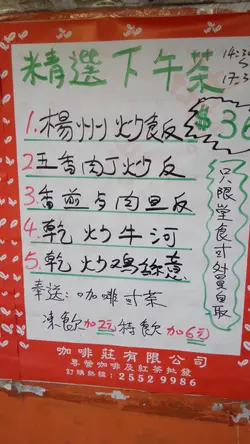 精選下午茶
14:30
17:30
1.楊州炒飯
$36
2.五香肉丁炒反
3.香煎与肉旦反
4.乾炒牛河
5.乾炒鸡絲意
只限堂食或外賣自取
奉送:咖啡或茶
凍飲加2元 特飲加6元
咖啡莊有限公司
專營咖啡及紅茶批發
訂購熱線:2552 9986